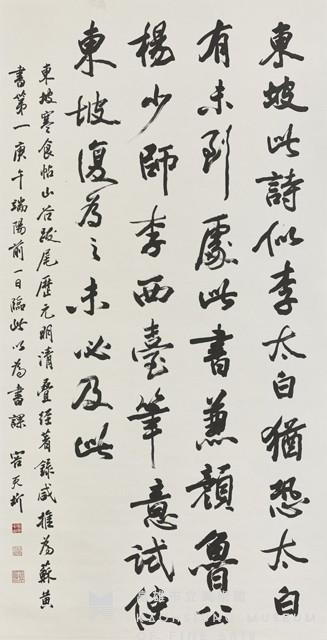 東坡此詩似李太白猶恐太白
有未到處此書兼顏魯公
楊少師李西臺筆意試使
東坡復為之未必及此
東坡寒食帖山谷跋尾歷元明清疊經著錄咸推為蘇黃
書第一庚午端陽前一日臨此以為書課 容天圻
高雄市立美術館
KAOHSIUNG MUSEUM
OF FINE ARTS